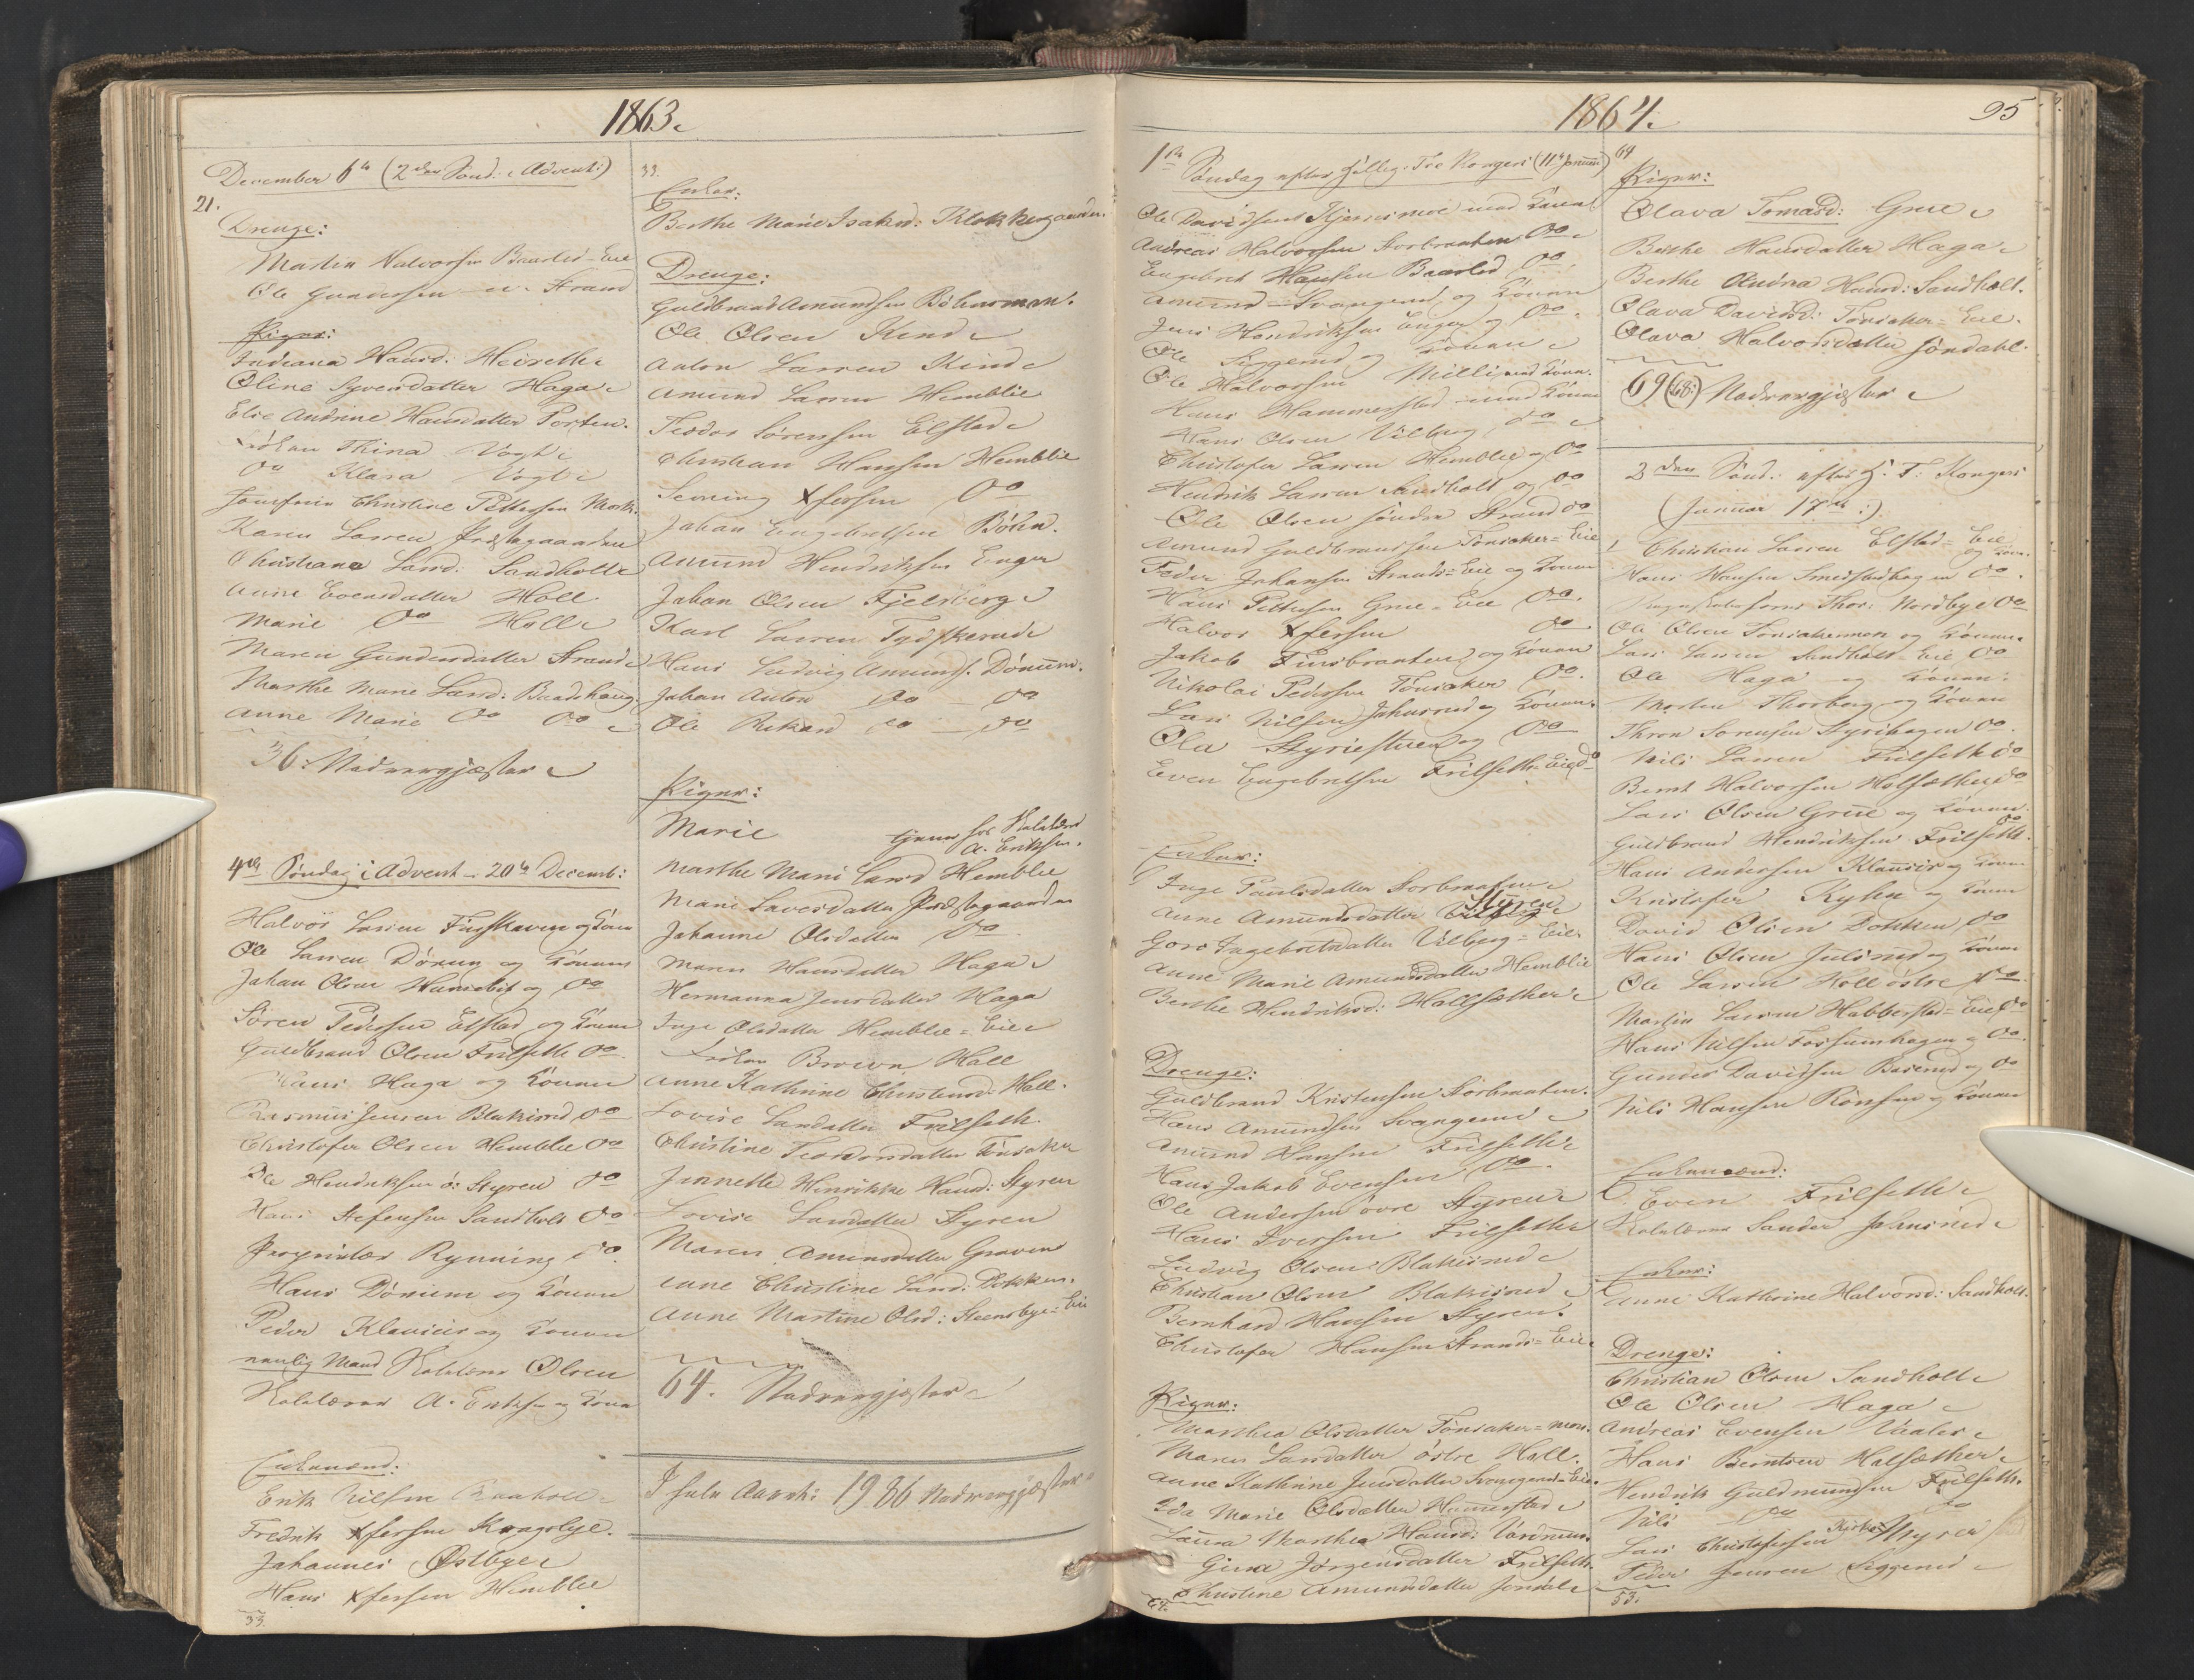 1863.
December 6te (2den Sønd. i Advent:)
21.
Drenge:
Martin Halvorsen Baarlid-Eie
Ole Gundersen Strand
Piger:
Indiana Hansd: Heireth
Oline Syversdatter Haga
Elise Andrine Hansdatter Porten.
Frøken Thina Vogt
Do Klara Vogt
Jomfruen Christine Pettersen Mork.
Karen Larsen Præstegaarden
Christiane Larsd: Sandholt
Anne Evensdatter Holl
Marie Do Holl
Maren Gundersdatter Strand
Marthe Marie Larsd: Baadshaug
Anne Marie Do Do
36. Nadvergjæster
4de Søndag i Advent - 20de Decemb:
Halvor Larsen og Konen
Ole Larsen Dønum og Konen
Johan Olsen og Do
Søren Pedersen Elstad og Konen
Guldbrand Olsen Frilseth Do
Hans Haga og Konen
Rasmus Jensen Blakisrud Do
Christofer Olsen Hemblie Do
Ole Hendriksen ø: Styren Do
Hans Stefensen Sandholt Do
Proprietær Rynning Do
Hans Dønum og Konen
Peder Klavies og Konen
nemlig Mand Skolelærer Olsen
Skolelærer A. Eriksen og Konen
Enkemænd:
Erik Nilsen
Fredrik Xfersen Kragelye.
Johannes Østbye
Hans Xfersen Hemblie
33.
33.
Enker:
Berthe Marie Isaksd: Klokkergaarden.
Drenge:
Guldbrand Amundsen Bøhnsmoen.
Ole Olsen Rind
Anton Larsen Rind
Amund Larsen Hemblie
Teodor Sørensen Elstad
Christian Hansen Hemblie
Severing Xfersen Do
Johan Engebretsen Bøhn.
Amund Hendriksen Enger
Johan Olsen Fjeldberg
Karl Larsen Tydskerud
Hans Ludvig Amunds. Dønum.
Johan Anton Do - Do
Ole Rikard Do - Do
Piger:
Marie tjener hos Skolelærer
A. Eriksen.
Marthe Marie Larsd Hemblie
Marie Larsdatter Præstegaarden
Johanne Olsdatter Do
Maren Hansdatter Haga
Hermanna Jensdatter Haga
Inge Olsdatter Hemblie=Eie
Frøken Brown Holl
Anne Kathrine Christensd: Holl.
Lovise Larsdatter Frilseth.
Christine Teodorsdatter Tønsaker
Jennette Henrikke Hansd: Styren
Lovise Larsdatter Styren
Maren Amundsdatter Graven
Anne Christine Larsd: Dokken.
Anne Martine Olsd: Steensbye=Eie
64. Nadvergjæster
I hele Aaret: 1986 Nadvergjæster
1864.
95
1ste Søndag efter Hellig-Tre Konger (11te Januar)
Ole Davidsen Stjernsmoe med Konen
Andreas Halvorsen Storbraaten Do
Engebret Hansen Baarlid Do
Amund Svangerud og Konen
Jens Hendriksen Enger og Do
Ole Siggerud og Konen
Ole Halvorsen Milli med Konen.
Hans Hammerstad med Konen
Hans Olsen Vilberg Do
Christofer Larsen Hemblie og Do
Hendrik Larsen Sandholt og Do
Ole Olsen søndre Strand Do
Amund Guldbrandsen Tønsaker=Eie
Peder Johansen Strands=Eie og Konen
Hans Pettersen Grue=Eie Do.
Halvor Xfersen Do
Jakob Finsbraaten og Konen
Nikolai Pedersen Tønsaker Do.
Lars Nilsen Johnsrud og Konen.
Ola Styriestuen og Do
Even Engebretsen Frilseth=Eie Do
Enker:
Inge Paulsdatter Storbraaten
Anne Amundsdatter Styren
Goro Ingebretsdatter Vilberg=Eie
Anne Marie Amundsdatter Hemblie
Berthe Hendriksd: Holsæther
Drenge:
Guldbrand Kristensen Storbraaten.
Hans Amundsen Svangerud
Amund Hansen Frilseth
Hans Jakob Evensen Do.
Ole Andersen øvre Styren
Hans Iversen Frilseth
Ludvig Olsen Blakisrud
Christian Olsen Blakisrud
Bernhard Hansen Styren.
Christofer Hansen Strands=Eie
Piger:
Marthea Olsdatter Tønsaker=moen.
Maren Larsdatter østre Holl.
Anne Kathrine Jensdatter Svangerud=Eie.
Ida Marie Olsdatter Hammerstad
Laura Marthea Hansd:
Gina Jørgensdatter Frilseth.
Christine Amundsdatter Jøndal
64.
64
Piger:
Olava Tomasd: Grue
Berthe Hansdatter Haga
Berthe Andrea Hansd: Sandholt.
Olava Davidsd: Tønsaker=Eie.
Olava Halvorsdatter Jøndahl.
69 (68:) Nadvergjæster
2den Sønd: efter H. T. Konger
(Januar 17de:)
Christian Larsen Elstad=Eie
og Konen.
Hans Hansen Smedstadhagen Do.
Thor: Nordbye Do
Ole Olsen Tønsakermoen og Konen.
Lars Larsen Sandholt=Eie Do
Ole Haga og Konen:
Morten Thorberg og Konen
Thron Sørensen Styrihagen Do
Nils Larsen Frilseth Do
Bernt Halvorsen Holsæther Do
Lars Olsen Grue og Konen.
Guldbrand Hendriksen Frilseth Do.
Hans Andersen Klavies og Konen
Kristofer Rykge og Konen
David Olsen Dokken Do
Hans Olsen Julsrud og Konen
Ole Larsen Holl østre Do
Martin Larsen Habberstad=Eie Do
Hans Nilsen Fossumhagen og Do.
Gunder Davidsen Baserud og Do
Nils Hansen Rønsen og Konen
Enkemænd:
Even Frilseth
Skolelærer Sander Johnsrud
Enker:
Anne Kathrine Halvorsd: Sandholt.
Drenge:
Christian Olsen Sandholt
Ole Olsen Haga
Andreas Evensen Vaaler
Hans Berntsen Holsæther
Hendrik Guldmundsen Frilseth.
Nils Do Do
Lars Christofersen Kirke Myrer
Peder Jensen Siggerud
53.